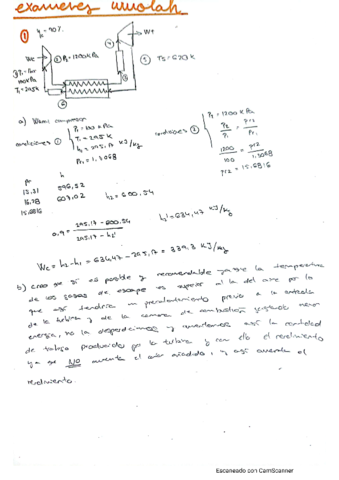 examenes uuolah
① η = 90%
Wc
② P2 = 1200 kPa
Wt
⑤ T5 = 620 K
① P1 =
100 kPa
T1 = 295 K
a) Wreal compresor
condiciones ① P1 = 100 kPa
T1 = 295 K
h1 = 295,17 kJ/kg
Pr1 = 1.3068
condiciones ② P2 = 1200 kPa
P2/P1 = Pr2/Pr1
1200/100 = Pr2/1.3068
Pr2 = 15.6816
pr h
15,31 596,52
16,28 607,02
15,6816 h2 = 600,54
0,9 = (295,17 - 600,54)/(295,17 - h2') h2' = 634,47 kJ/kg
Wc = h2 - h1 = 634,47 - 295,17 = 339,3 kJ/kg
b) creo que si es posible y recomendable ya que la temperatura
de los gases de escape es superior a la del aire por lo
que así tendría un precalentamiento previo a la entrada
de la turbina y de la camara de combustion menor
energía, no la desperdiciamos y aumentamos así la cantidad
de trabajo producido por la turbina y con ello el rendimiento
ya que NO aumenta el calor añadido, y así aumenta el
rendimiento.
Escaneado con CamScanner